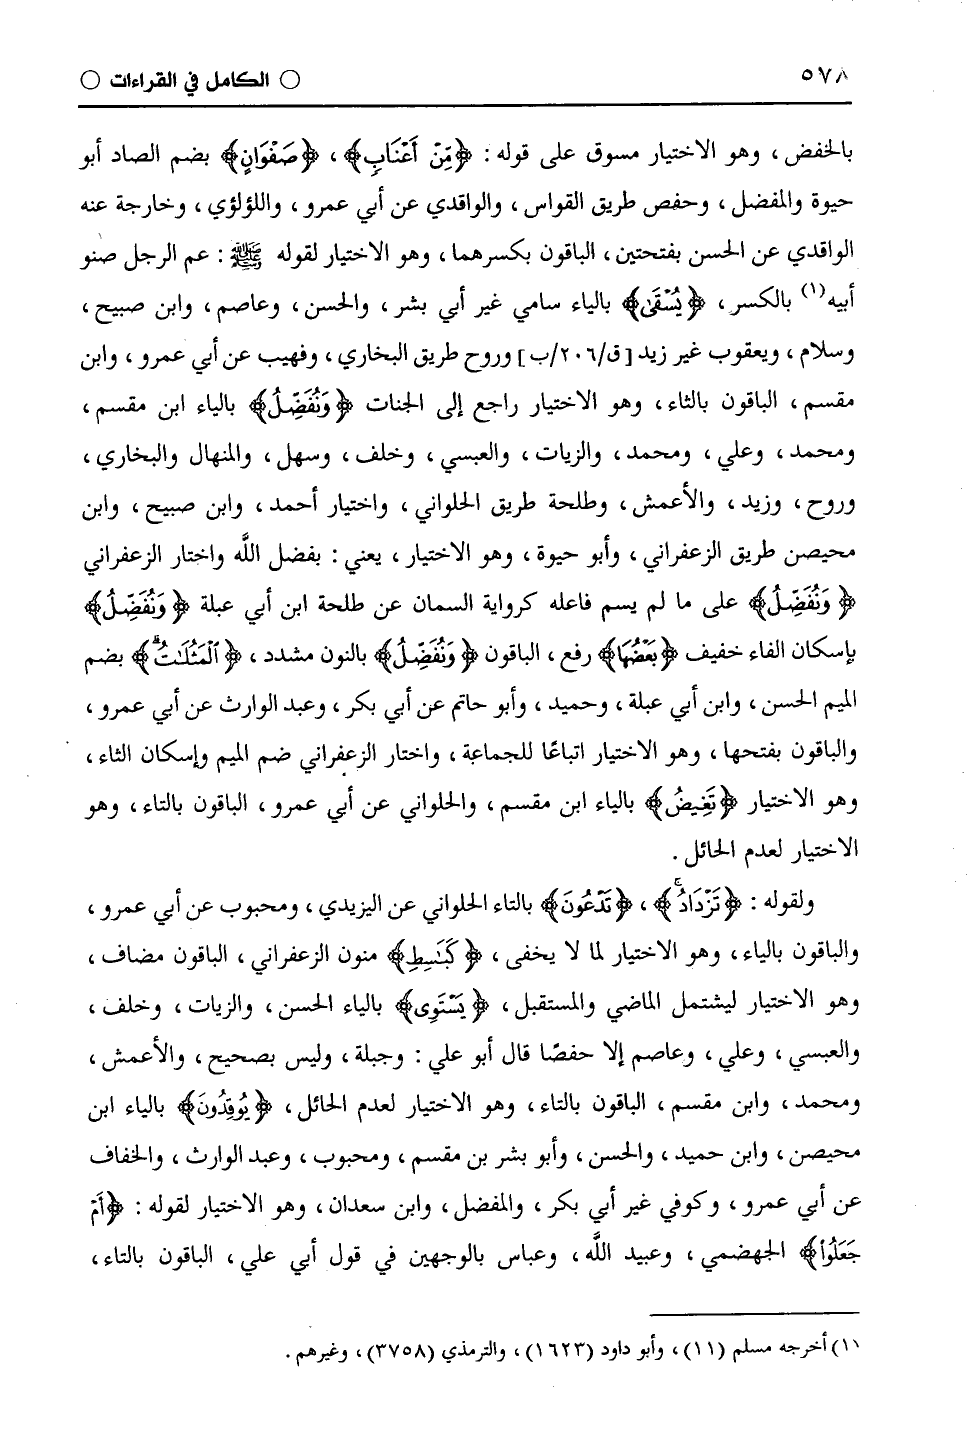 ٥٧٨ ○ الكامل في القراءات ○
بالخفض، وهو الاختيار مسوق على قوله: ﴿مِّنْ أَعْنَابٍ﴾، ﴿صَفْوَانٍ﴾ بضم الصاد أبو
حيوة والمفضل، وحفص طريق القواس، والواقدي عن أبي عمرو، واللؤلؤي، وخارجة عنه
الواقدي عن الحسن بفتحتين، الباقون بكسرهما، وهو الاختيار لقوله ﷺ: عم الرجل صنو
أبيه(١) بالكسر، ﴿يُسْقَىٰ﴾ بالياء سامي غير أبي بشر، والحسن، وعاصم، وابن صبيح،
وسلام، ويعقوب غير زيد [ق/٢٠٦/ب] وروح طريق البخاري، وفهيب عن أبي عمرو، وابن
مقسم، الباقون بالثاء، وهو الاختيار راجع إلى الجنات ﴿وَنُفَضِّلُ﴾ بالياء ابن مقسم،
ومحمد، وعلي، ومحمد، والزيات، والعبسي، وخلف، وسهل، والمنهال والبخاري،
وروح، وزيد، والأعمش، وطلحة طريق الحلواني، واختيار أحمد، وابن صبيح، وابن
محيصن طريق الزعفراني، وأبو حيوة، وهو الاختيار، يعني: بفضل اللَّه واختار الزعفراني
﴿وَنُفَضِّلُ﴾ على ما لم يسم فاعله كرواية السمان عن طلحة ابن أبي عبلة ﴿وَنُفَضِّلُ﴾
بإسكان الفاء خفيف ﴿بَعْضُهَا﴾ رفع، الباقون ﴿وَنُفَضِّلُ﴾ بالنون مشدد، ﴿الْمَثُلَاتُ﴾ بضم
الميم الحسن، وابن أبي عبلة، وحميد، وأبو حاتم عن أبي بكر، وعبد الوارث عن أبي عمرو،
والباقون بفتحها، وهو الاختيار اتباعًا للجماعة، واختار الزعفراني ضم الميم وإسكان الثاء،
وهو الاختيار ﴿تَغِيضُ﴾ بالياء ابن مقسم، والحلواني عن أبي عمرو، الباقون بالتاء، وهو
الاختيار لعدم الحائل.
ولقوله: ﴿تَزْدَادُ﴾، ﴿تَدْعُونَ﴾ بالتاء الحلواني عن اليزيدي، ومحبوب عن أبي عمرو،
والباقون بالياء، وهو الاختيار لما لا يخفى، ﴿كَبَاسِطِ﴾ منون الزعفراني، الباقون مضاف،
وهو الاختيار ليشتمل الماضي والمستقبل، ﴿يَسْتَوِي﴾ بالياء الحسن، والزيات، وخلف،
والعبسي، وعلي، وعاصم إلا حفصًا قال أبو علي: وجبلة، وليس بصحيح، والأعمش،
ومحمد، وابن مقسم، الباقون بالتاء، وهو الاختيار لعدم الحائل، ﴿يُوقِدُونَ﴾ بالياء ابن
محيصن، وابن حميد، والحسن، وأبو بشر بن مقسم، ومحبوب، وعبد الوارث، والخفاف
عن أبي عمرو، وكوفي غير أبي بكر، والمفضل، وابن سعدان، وهو الاختيار لقوله: ﴿أَمْ
جَعَلُوا﴾ الجهضمي، وعبيد اللَّه، وعباس بالوجهين في قول أبي علي، الباقون بالتاء،
(١) أخرجه مسلم (١١)، وأبو داود (١٦٢٣)، والترمذي (٣٧٥٨)، وغيرهم.